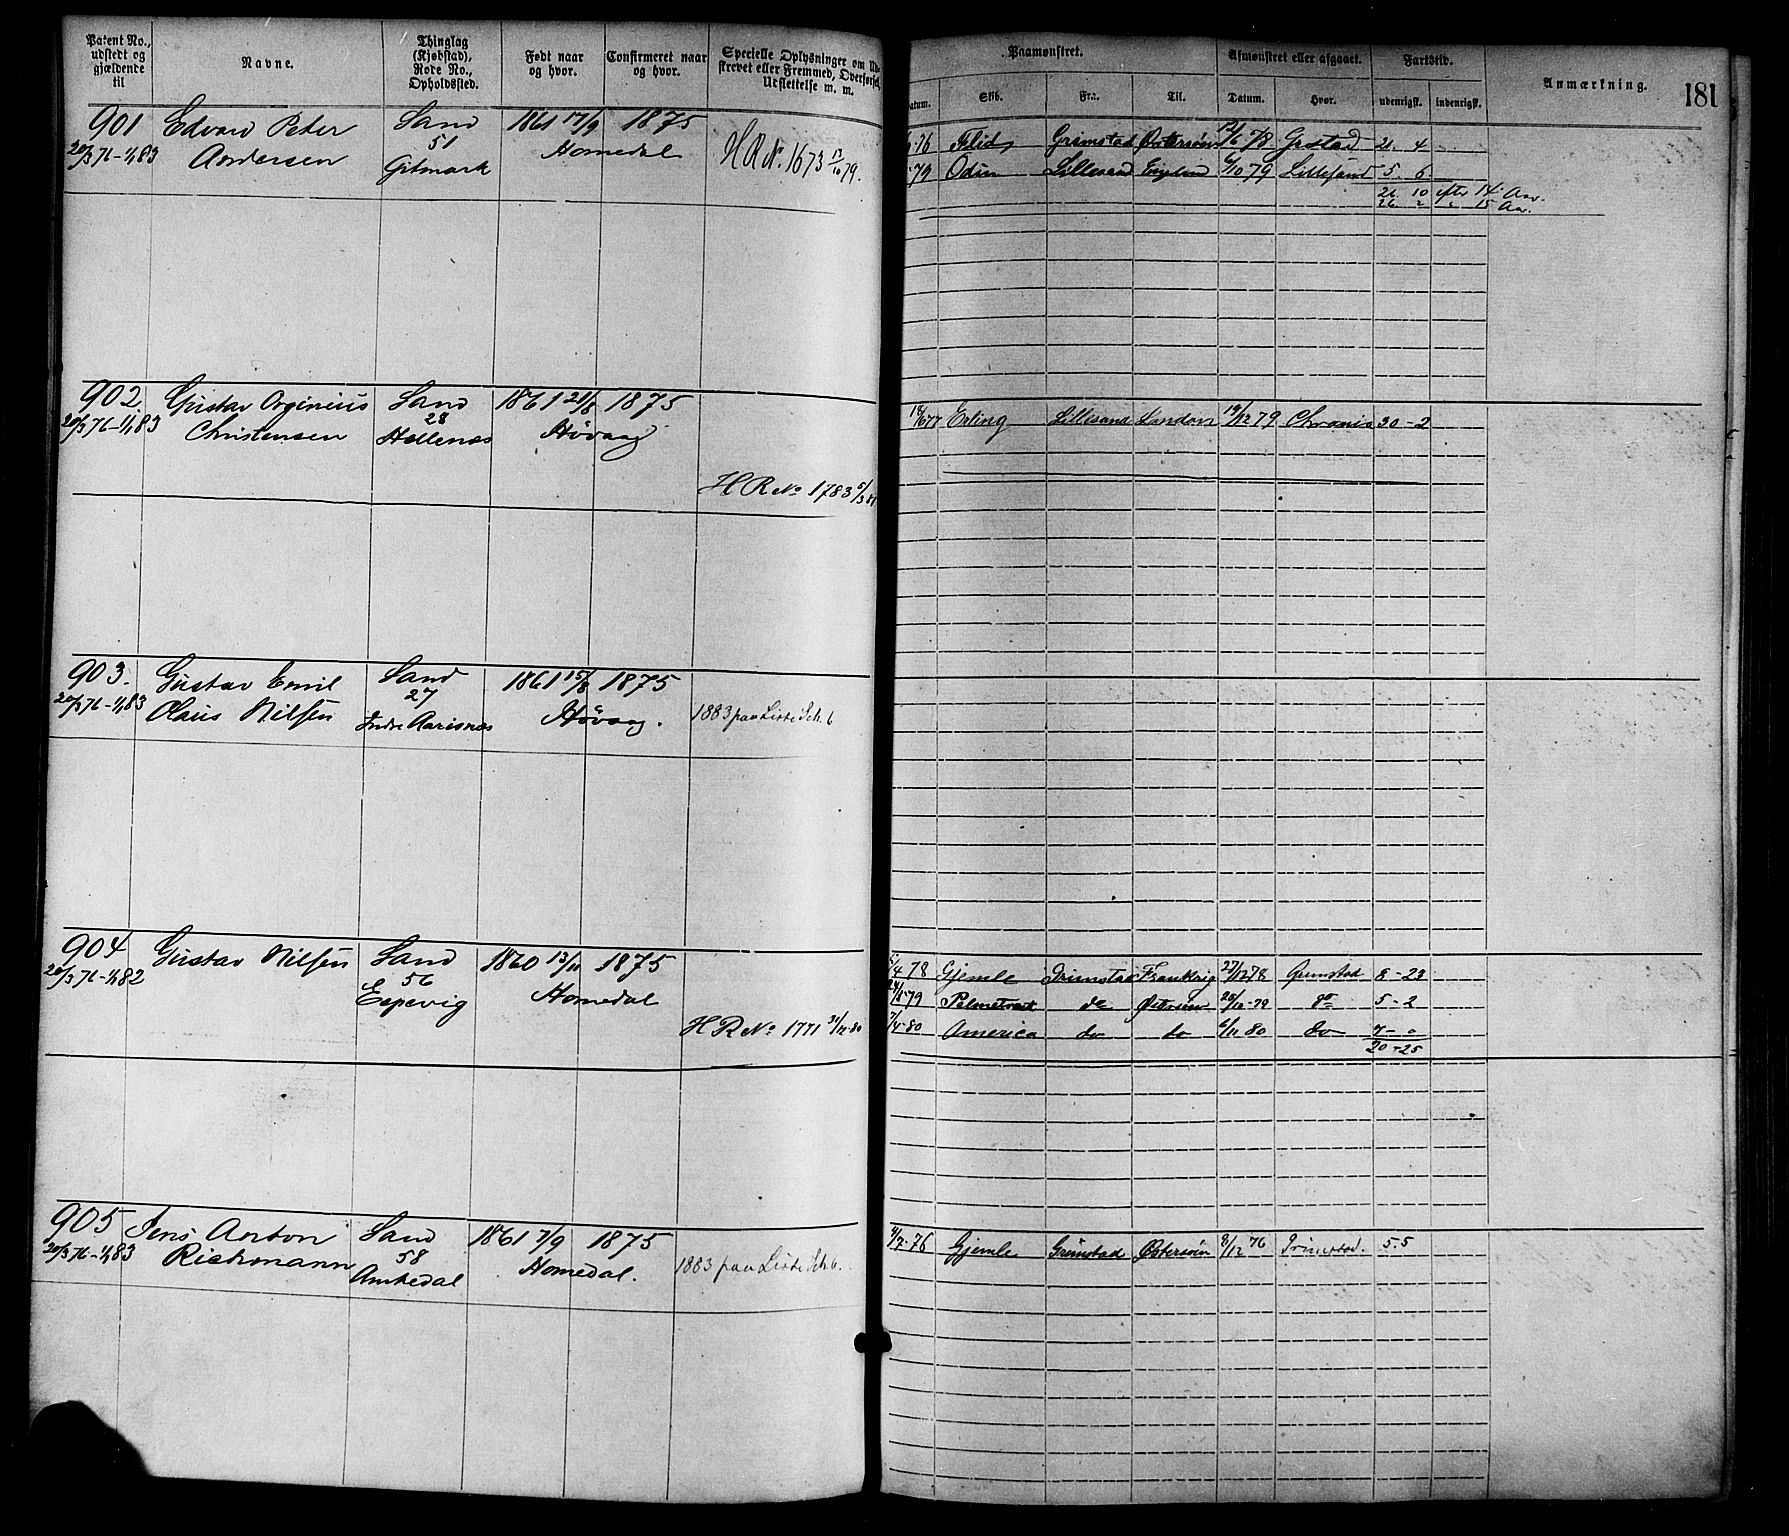 Patent No., udstedt og gjældende til
Navne.
Thinglag (Kjøbstad), Rode No., Opholdssted.
Født naar og hvor.
Confirmeret naar og hvor.
Specielle Oplysninger om Ud-
skrevet eller Fremmed, Overførsel,
Udslettelse m. m.
Paamønstret.
Afmønstret eller afgaaet.
Fartstid.
Anmærkning.
181
Datum. Skib. Fra. Til. Datum. Hvor. udenrigsk. indenrigsk.
901 Edvard Peter Sand 1861 17/9 1875
20/3 76-1/1 83 Andersen 51 Homedal H R No. 1673 13/10 79.
Gitmark
76 Grimstad Østersøen 12/6 78 Grstad 21 4
79 Odin Lillesand England 6/10 79 Lillesand 5. 6.
26 10 efter 14 Aar.
26 2 " 15 Aar.
902 Gustav Orginius Sand 1861 21/8 1875
20/3 76-1/1 83 Christensen 28 Høvaag
Hellenæs
H R No 1783 5/3 81
18/6 77 Erling Lillesand London 19/12 79 20-2
903. Gustav Emil Sand 1861 15/8 1875
20/3 76-1/1 83 Olaus Nilsen 27 Høvaag. 1883 paa Liste Sch. 6
Indre Aarisnæs
904 Gustav Nilsen Sand 1860 13/11 1875
20/3 76-1/1 82 56 Homedal
Espevig
H R No 1771 31/12-80
5/4 78 Gjemle Grimstad Frankrig 27/12 78 Grimstad 8-23
24/5 79 do Østersøen 26/10-79 do 5-2
7/4-80 America do do 6/11 80 do 7-0
20-25
905 Jens Anton Sand 1861 7/9 1875
20/3 76-1/1 83 Richmann 58 Homedal. 1883 paa Liste Sch. 6.
Amkedal
4/7-76 Gjemle Grimstad Østersøen 8/12 76 Grimstad. 5.5